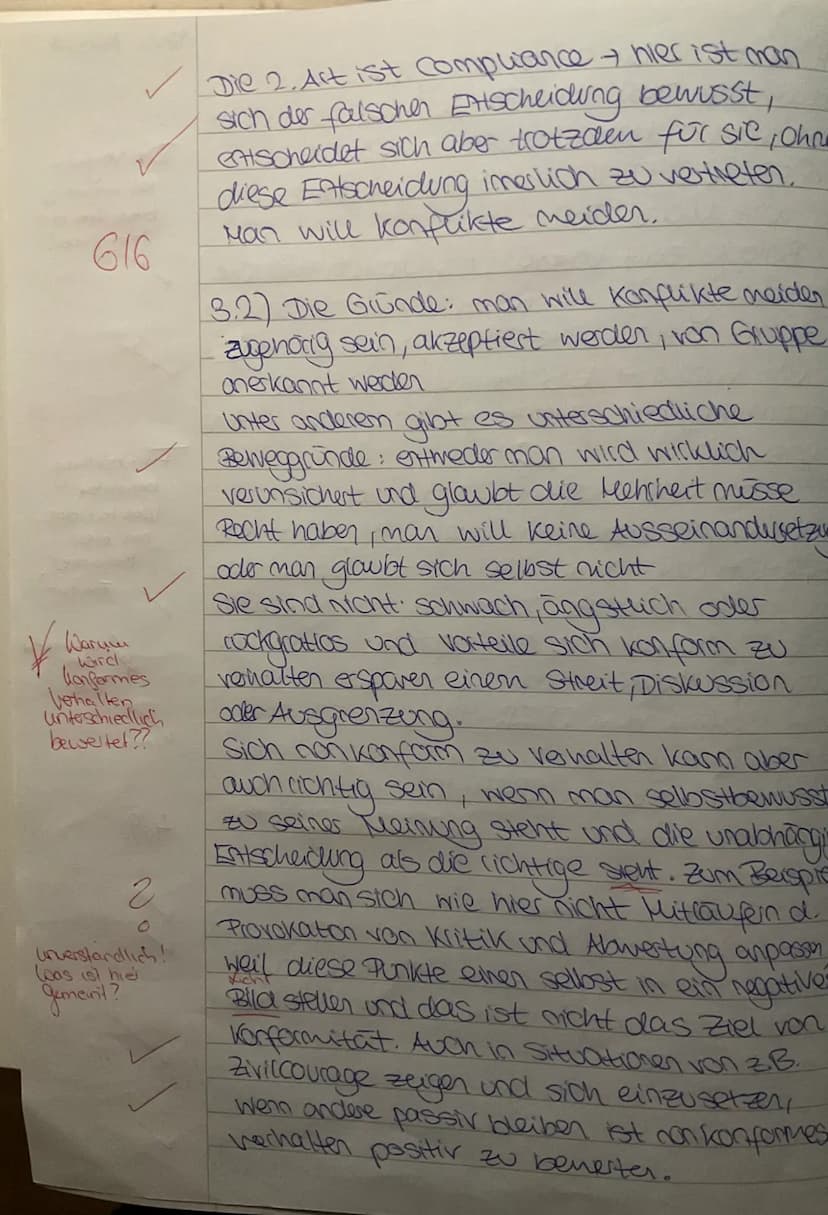 Die 2. Art ist Compliance → hier ist man
sich der falschen Entscheidung bewusst,
entscheidet sich aber trotzdem für sie, ohne
diese Entscheidung innerlich zu vertreten.
Man will Konflikte meiden.
6/6
3.2) Die Gründe: man will Konflikte meiden
zugehörig sein, akzeptiert werden, von Gruppe
anerkannt werden
Unter anderem gibt es unterschiedliche
Beweggründe: entweder man wird wirklich
verunsichert und glaubt die Mehrheit müsse
Recht haben, man will keine Ausseinandersetzung
oder man glaubt sich selbst nicht
Sie sind nicht: schwach, änggstlich oder
rückgratlos und Vorteile sich konform zu
verhalten ersparen einem Streit, Diskussion
oder Ausgrenzung.
Warum
wird
konformes
Verhalten
unterschiedlich
bewertet??
Sich nonkonform zu verhalten kann aber
auch richtig sein, wenn man selbstbewusst
zu seiner Meinung steht und die unabhängi
Entscheidung als die richtige sieht. Zum Beispie
muss man sich wie hier nicht Mitläufern d.
Provokaton von Kritik und Abwertung anpassen
weil diese Punkte einen selbst in ein negatives
Licht
Bild stellen und das ist nicht das Ziel von
?
unverständlich!
Was ist hier
gemeint?
Konformität. Auch in Situationen von z.B.
Zivilcourage zeigen und sich einzusetzen,
wenn andere passiv bleiben ist nonkonformes
Verhalten positiv zu bewerten.